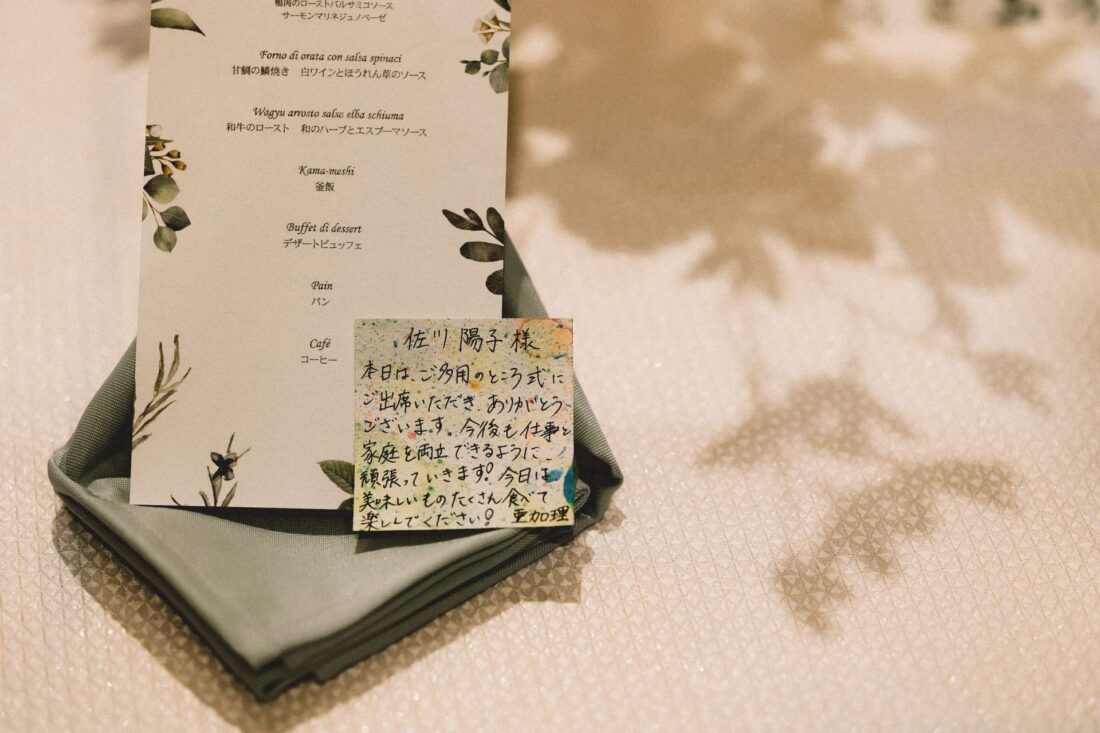 鴨肉のローストバルサミコソース
サーモンマリネジュノベーゼ
Forno di orata con salsa spinaci
甘鯛の鱗焼き 白ワインとほうれん草のソース
Wagyu arrosto salsa elba schiuma
和牛のロースト 和のハーブとエスプーマソース
Kama-meshi
釜飯
Buffet di dessert
デザートビュッフェ
Pain
パン
Café
コーヒー
佐川 陽子 様
本日は、ご多用のところ式に
ご出席いただき、ありがとう
ございます。今後も仕事と
家庭を両立できるように
頑張っていきます！今日は
美味しいものたくさん食べて
楽しんでください！ 亜加理